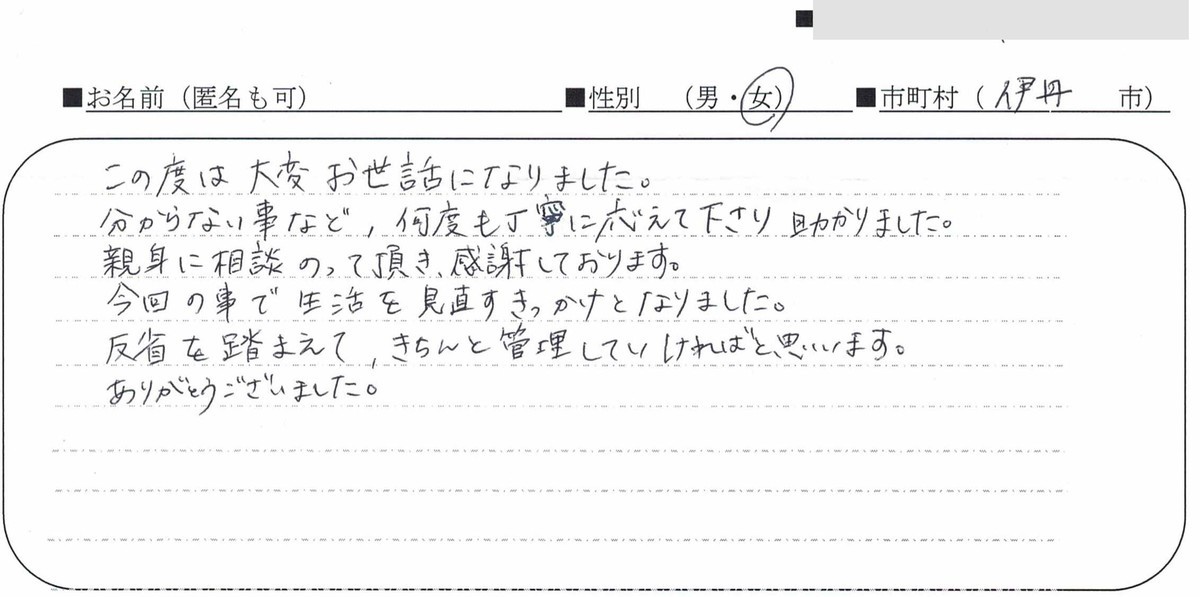 ■お名前（匿名も可） ■性別 （男・女） ■市町村（ 伊丹 市）
この度は大変お世話になりました。
分からない事など、何度も丁寧に応えて下さり助かりました。
親身に相談のって頂き、感謝しております。
今回の事で生活を見直すきっかけとなりました。
反省を踏まえて、きちんと管理していければと思いいます。
ありがとうございました。